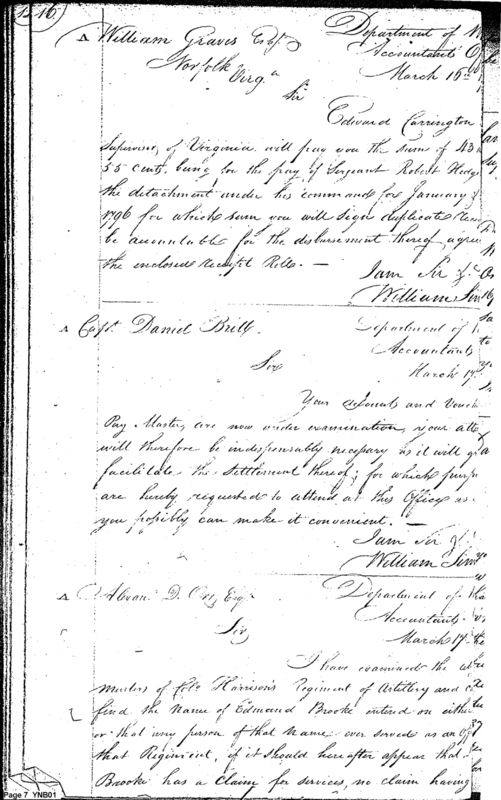 1216.
William Graves Esqr.
Department of W
Norfolk
Accountants O
Virga
March 15
Sir
Edward Carrington
Supervisor of Virginia will pay you the sum of 43
55 cents, being for the pay of Sergeant Robert Hedg
the detachment under his command for January &
1796 for which sum you will sign duplicate
be accountable for the disbursement thereof agree
the enclosed Receipt Rolls. —
I am Sir &c
William Sim
Capt. Daniel Britt.
Department of
Accountants
Sir
March 17.
Your accounts and Vouch
Pay Master, are now under examination, your atte
will therefore be indispensably necessary as it will
facilitate the Settlement thereof; for which purp
are hereby requested to attend at this Office as
you possibly can make it convenient. —
I am Sir &
William Sim
Alexan D. Orr Esqr
Department of
Accountants
Sir
March 17th
I have examined the
musters of Colo. Harrison's Regiment of Artillery and
find the Name of Edmund Brooke entered on eithe
or that any person of that Name ever served as an
that Regiment, if it should hereafter appear that
Brooke has a Claim for services, no claim having
Page 7 YNB01